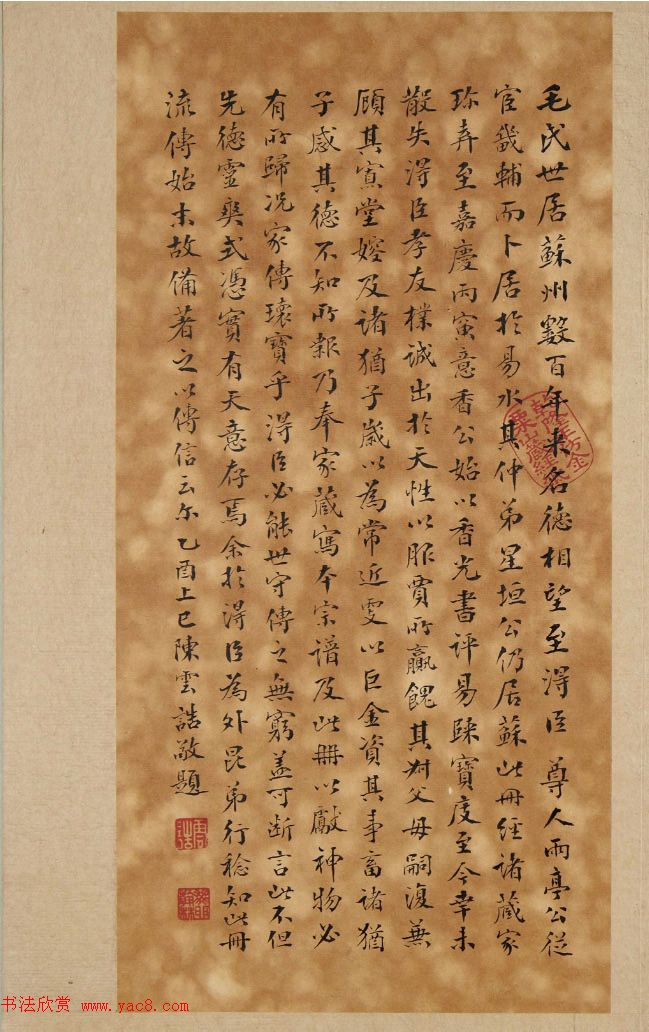 毛氏世居蘇州數百年来名德相望至淂臣尊人雨亭公從
宦畿輔而卜居於易水其仲弟星垣公仍居蘇此冊經諸藏家
珎弆至嘉慶丙寅意香公始以香光書評易歸寶度至今幸未
散失淂臣孝友樸誠出於天性以服賈所贏餽其叔父母嗣復兼
顧其寡堂嫂及諸猶子歲以為常近更以巨金資其事畜諸猶
子感其德不知所報乃奉家藏寫本宗譜及此冊以獻神物必
有所歸况家傳瓌寶乎淂臣必能世守傳之無窮盖可断言此不但
先德靈爽式憑實有天意存焉余於淂臣為外昆弟行稔知此冊
流傳始末故備著之以傳信云尔乙酉上巳陳雲誥敬題
书法欣赏 www.yac8.com